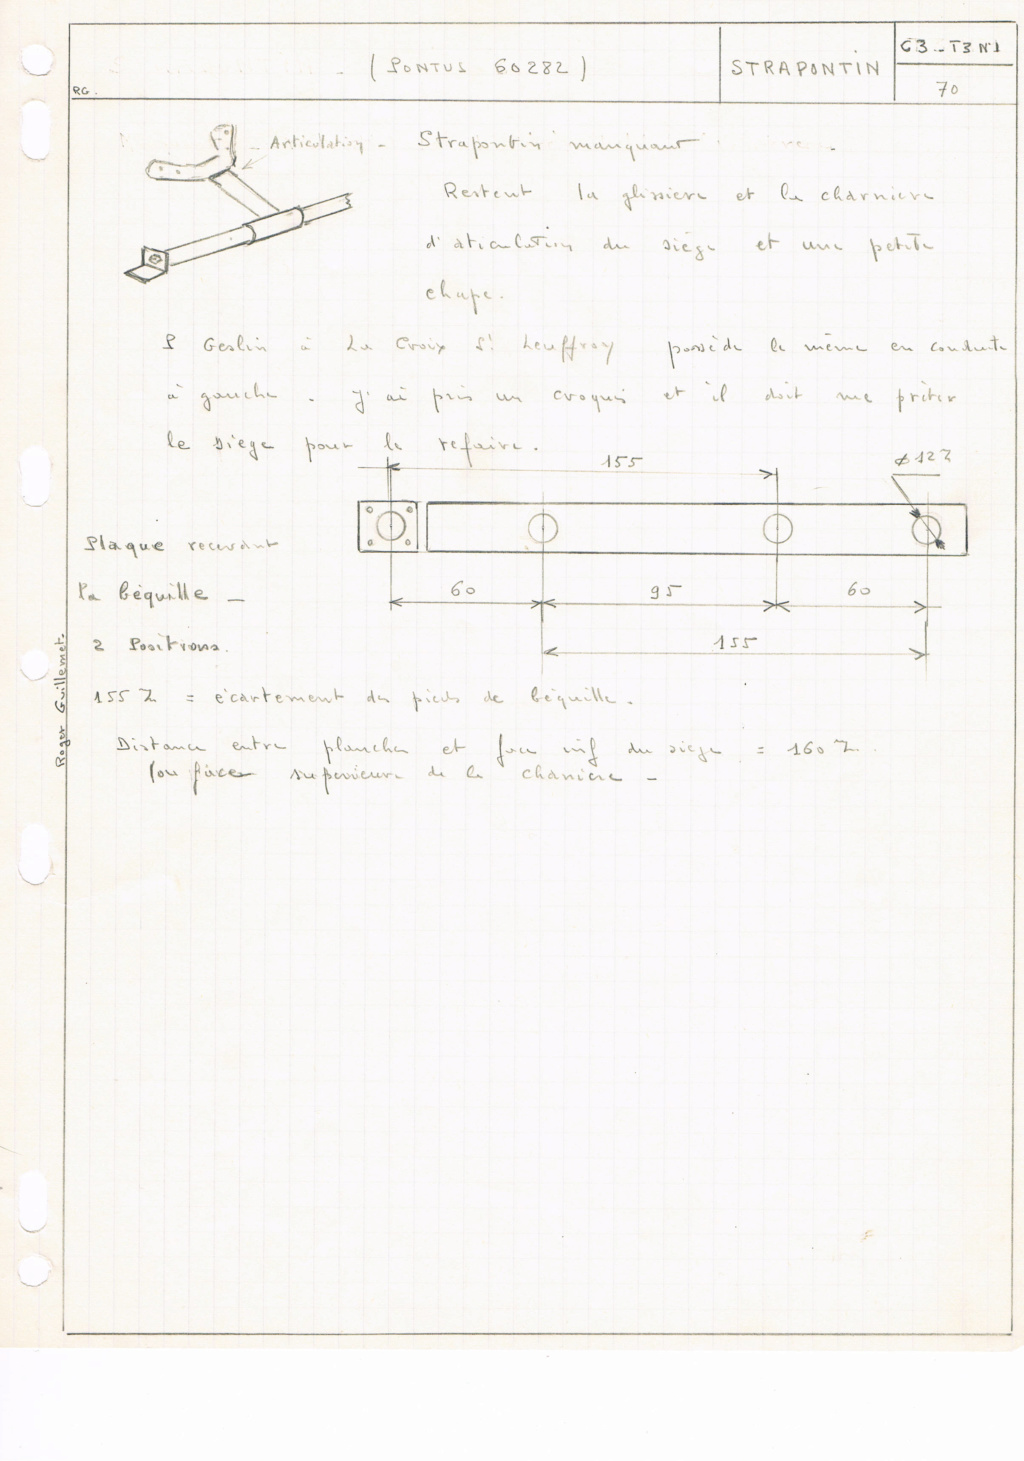 (PONTUS 60282)
STRAPONTIN
C3 _ T3 N°1
70
RG.
Articulation - Strapontin manquant
Restent la glissiere et la charniere
d'articulation du siège et une petite
chape.
P Geslin à La Croix St Leuffroy possède le même en conduite
à gauche. J'ai pris un croquis et il doit me prêter
le siège pour le refaire.
155
ø 12
Plaque recevant
la béquille _
2 Positions.
60
95
60
155
155 = écartement des pieds de béquille.
Distance entre plancher et face inf du siège = 160
(ou face superieure de la charniere _
Roger Guillemet.